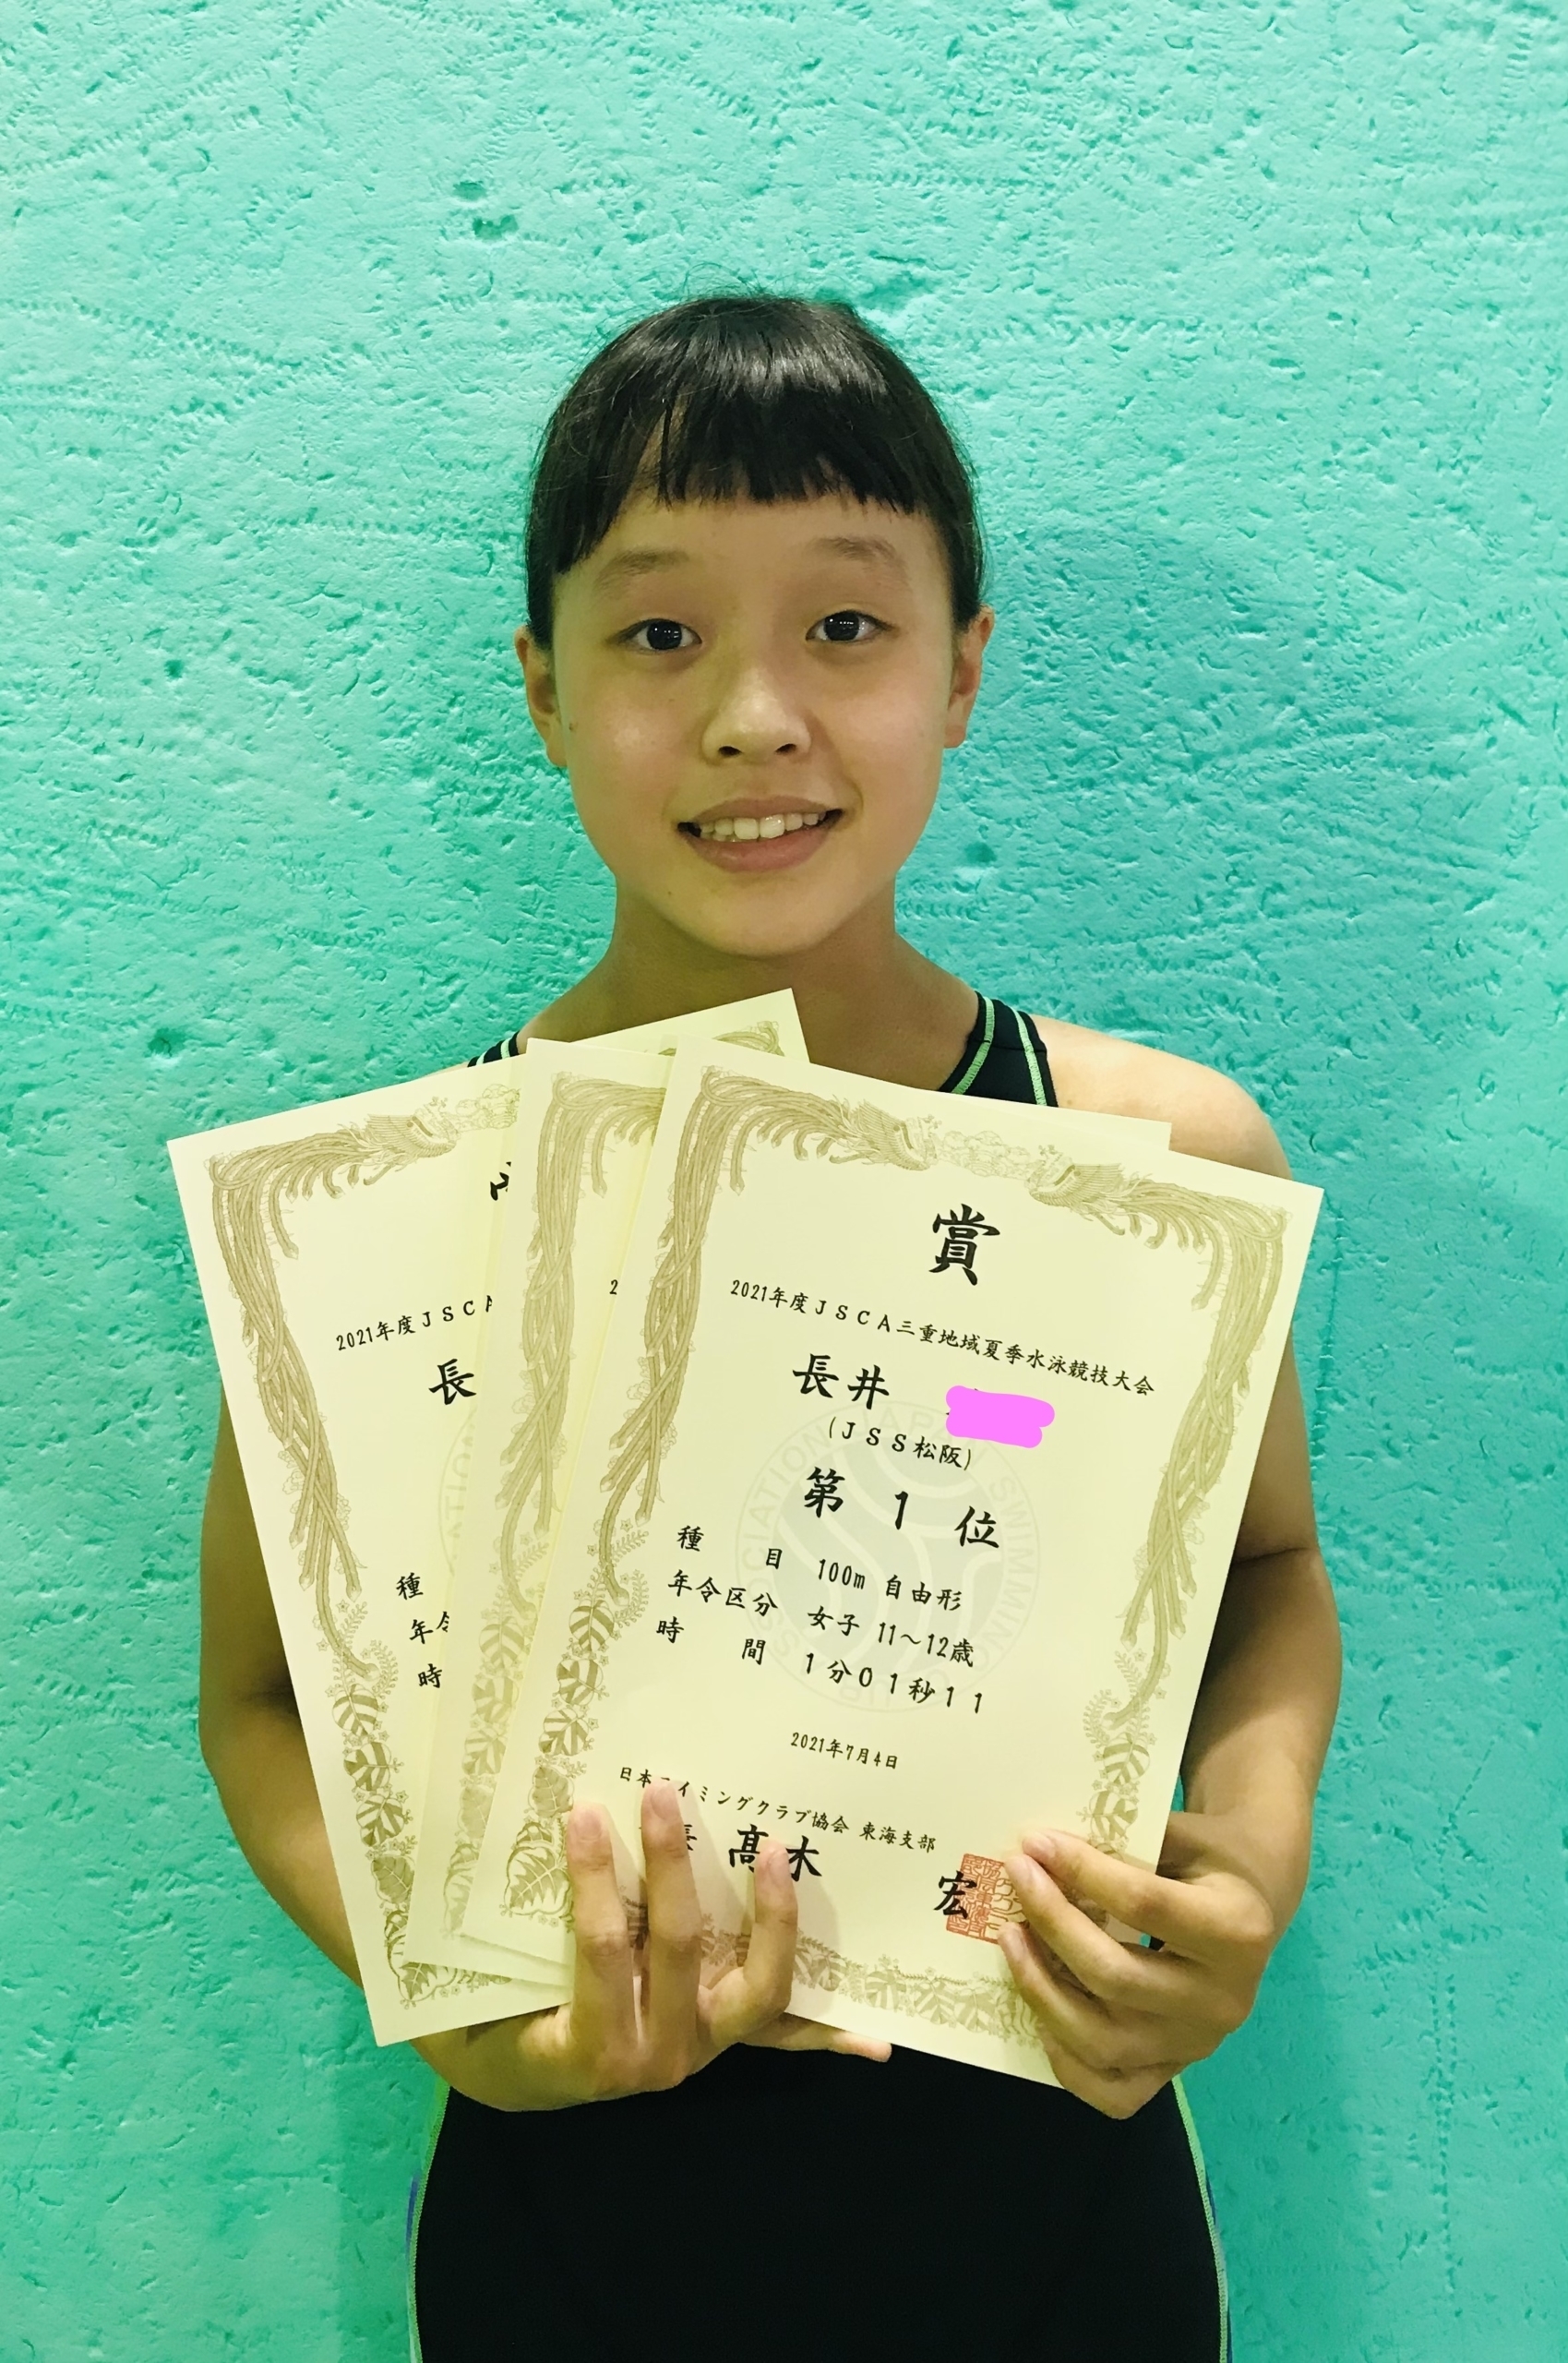 賞
2021年度JSCA三重地域夏季水泳競技大会
長井
(JSS松阪)
第 1 位
種 目 100m 自由形
年令区分 女子 11～12歳
時 間 1分01秒11
2021年7月4日
日本スイミングクラブ協会 東海支部
長 髙木 宏
2021年度JSCA
長
種
年令
時
2